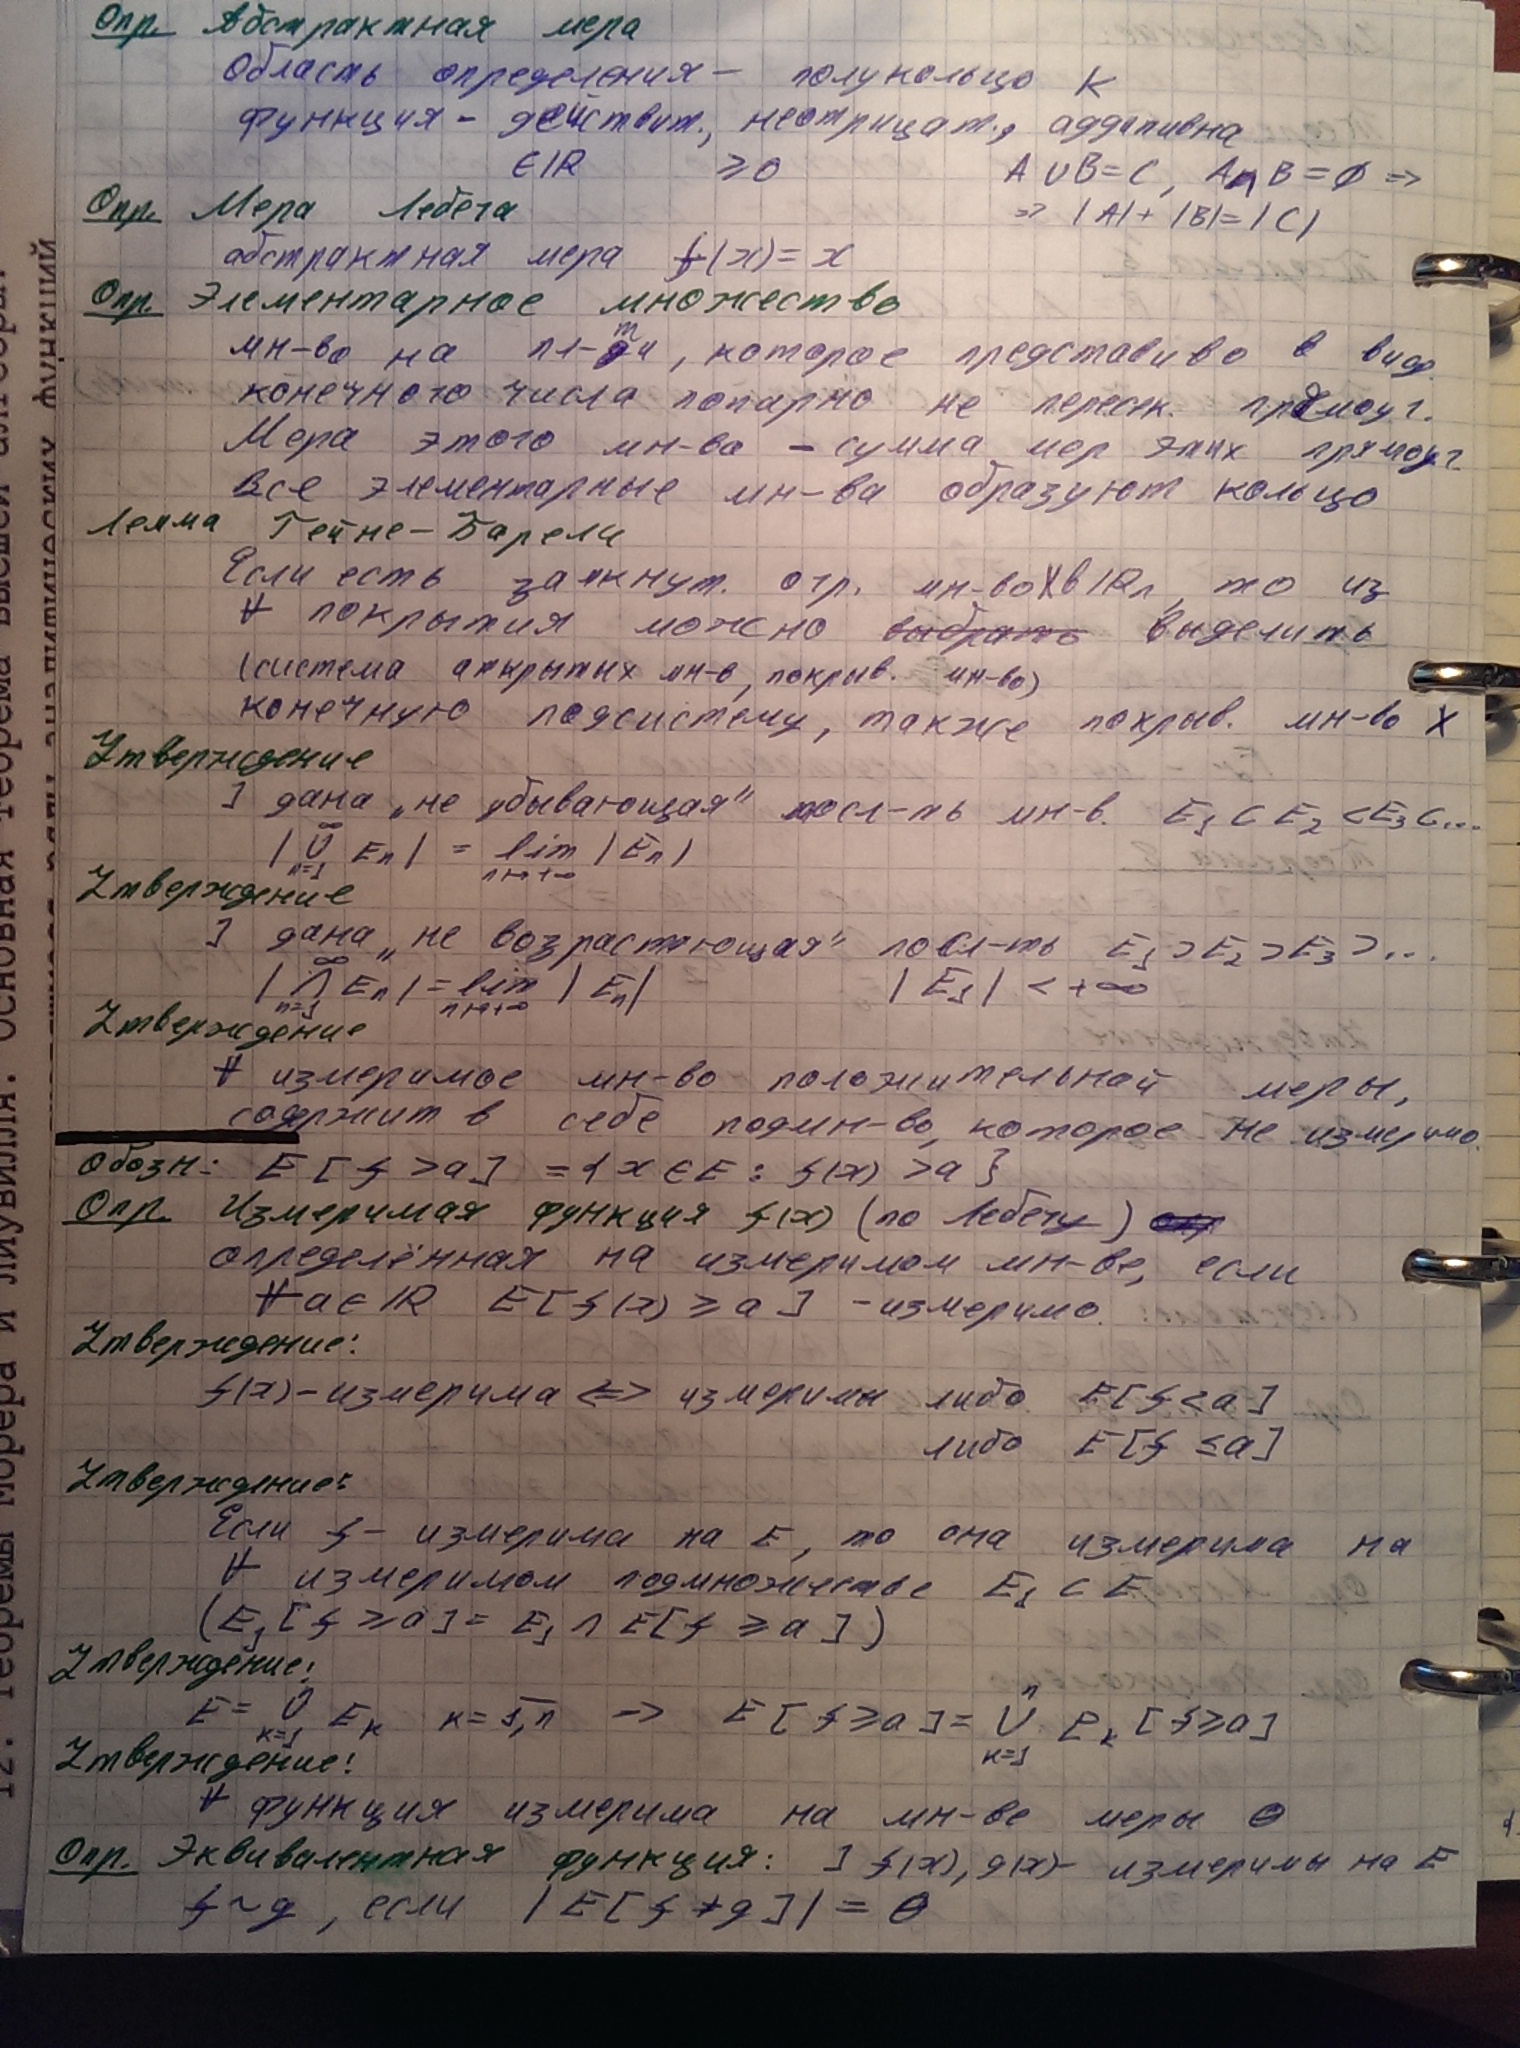 Опр. Абстрактная мера
Область определения – полукольцо K
функция – действит., неотрицат., аддитивна
∈ℝ ≥0 A∪B=C, A∩B=∅ ⇒
⇒ |A|+|B|=|C|
Опр. Мера Лебега
абстрактная мера f(x)=x
Опр. Элементарное множество
мн-во на пл-ти, которое представимо в виде
конечного числа попарно не пересек. прямоуг.
Мера этого мн-во – сумма мер этих прямоуг.
Все элементарные мн-ва образуют кольцо
Лемма Гейне-Бореля
Если есть замкнут. огр. мн-во X в ℝn, то из
∀ покрытия можно выбрать выделить
(система открытых мн-в, покрыв. мн-во)
конечную подсистему, также покрыв. мн-во X
Утверждение
] дана „не убывающая" посл-ть мн-в. E₁⊂E₂⊂E₃⊂...
|∪ₙ₌₁^∞ Eₙ| = lim_{n→+∞} |Eₙ|
Утверждение
] дана „не возрастающая" посл-ть E₁⊃E₂⊃E₃⊃...
|∩ₙ₌₁^∞ Eₙ| = lim_{n→+∞} |Eₙ| |E₁|<+∞
Утверждение
∀ измеримое мн-во положительной меры,
содержит в себе подмн-во, которое не измеримо.
Обозн: E[f>a] ={x∈E: f(x)>a}
Опр. Измеримая функция f(x) (по Лебегу)
определённая на измеримом мн-ве, если
∀a∈ℝ E[f(x)≥a] –измеримо.
Утверждение:
f(x)–измерима ⇔ измеримы либо E[f<a]
либо E[f≤a]
Утверждение:
Если f – измерима на E, то она измерима на
∀ измеримом подмножестве E₁⊂E
(E₁[f≥a]=E₁∩E[f≥a])
Утверждение:
E=∪ₖ₌₁ⁿ Eₖ k=1,n → E[f≥a]=∪ₖ₌₁ⁿ Eₖ[f≥a]
Утверждение:
∀ функция измерима на мн-ве меры 0
Опр. Эквивалентная функция: ] f(x), g(x)– измеримы на E
f~g, если |E[f≠g]|=0